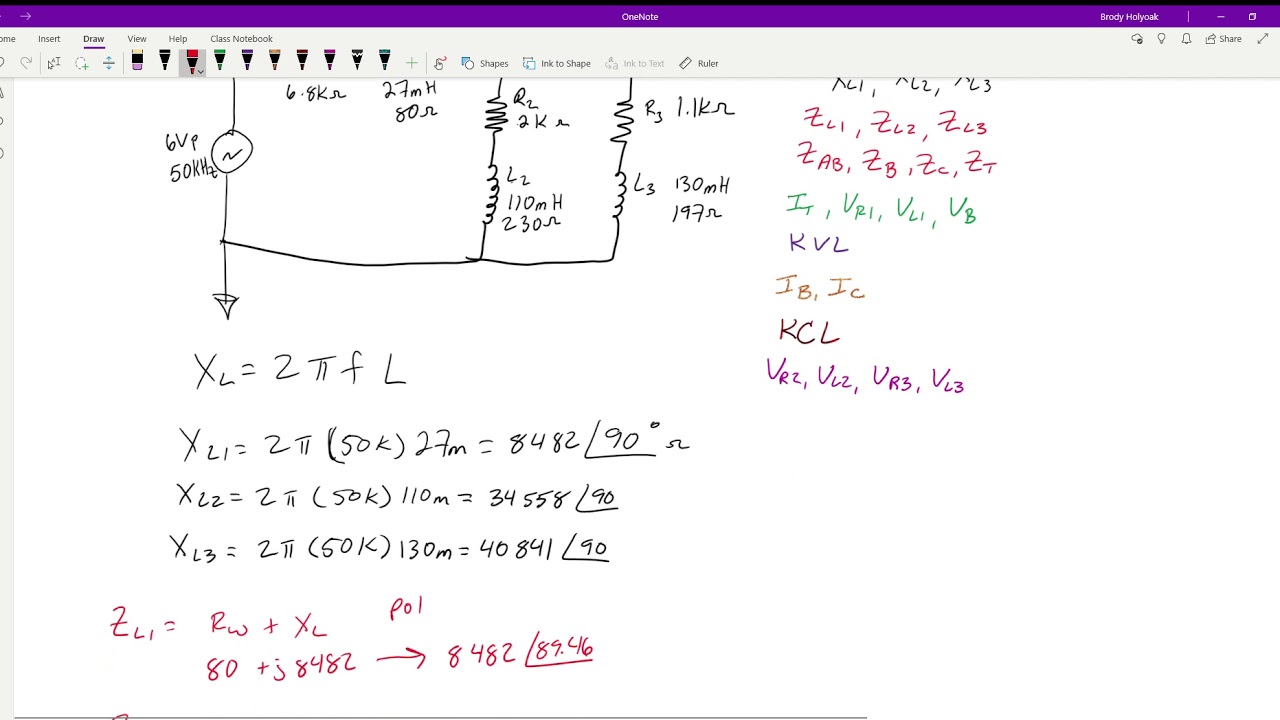 OneNote
Brody Holyoak
Insert Draw View Help Class Notebook
Share
Shapes Ink to Shape Ink to Text Ruler
6.8KΩ
27mH
80Ω
R2
2KΩ
R3 1.1KΩ
6Vp
50KHz
L2
110mH
230Ω
L3 130mH
197Ω
XL1, XL2, XL3
ZL1, ZL2, ZL3
ZAB, ZB, ZC, ZT
IT, VR1, VL1, VB
KVL
IB, IC
KCL
VR2, VL2, VR3, VL3
XL = 2πfL
XL1 = 2π(50K)27m = 8482∠90°Ω
XL2 = 2π(50K)110m = 34558∠90
XL3 = 2π(50K)130m = 40841∠90
ZL1 = Rw + XL pol
80 + j8482 → 8482∠89.46